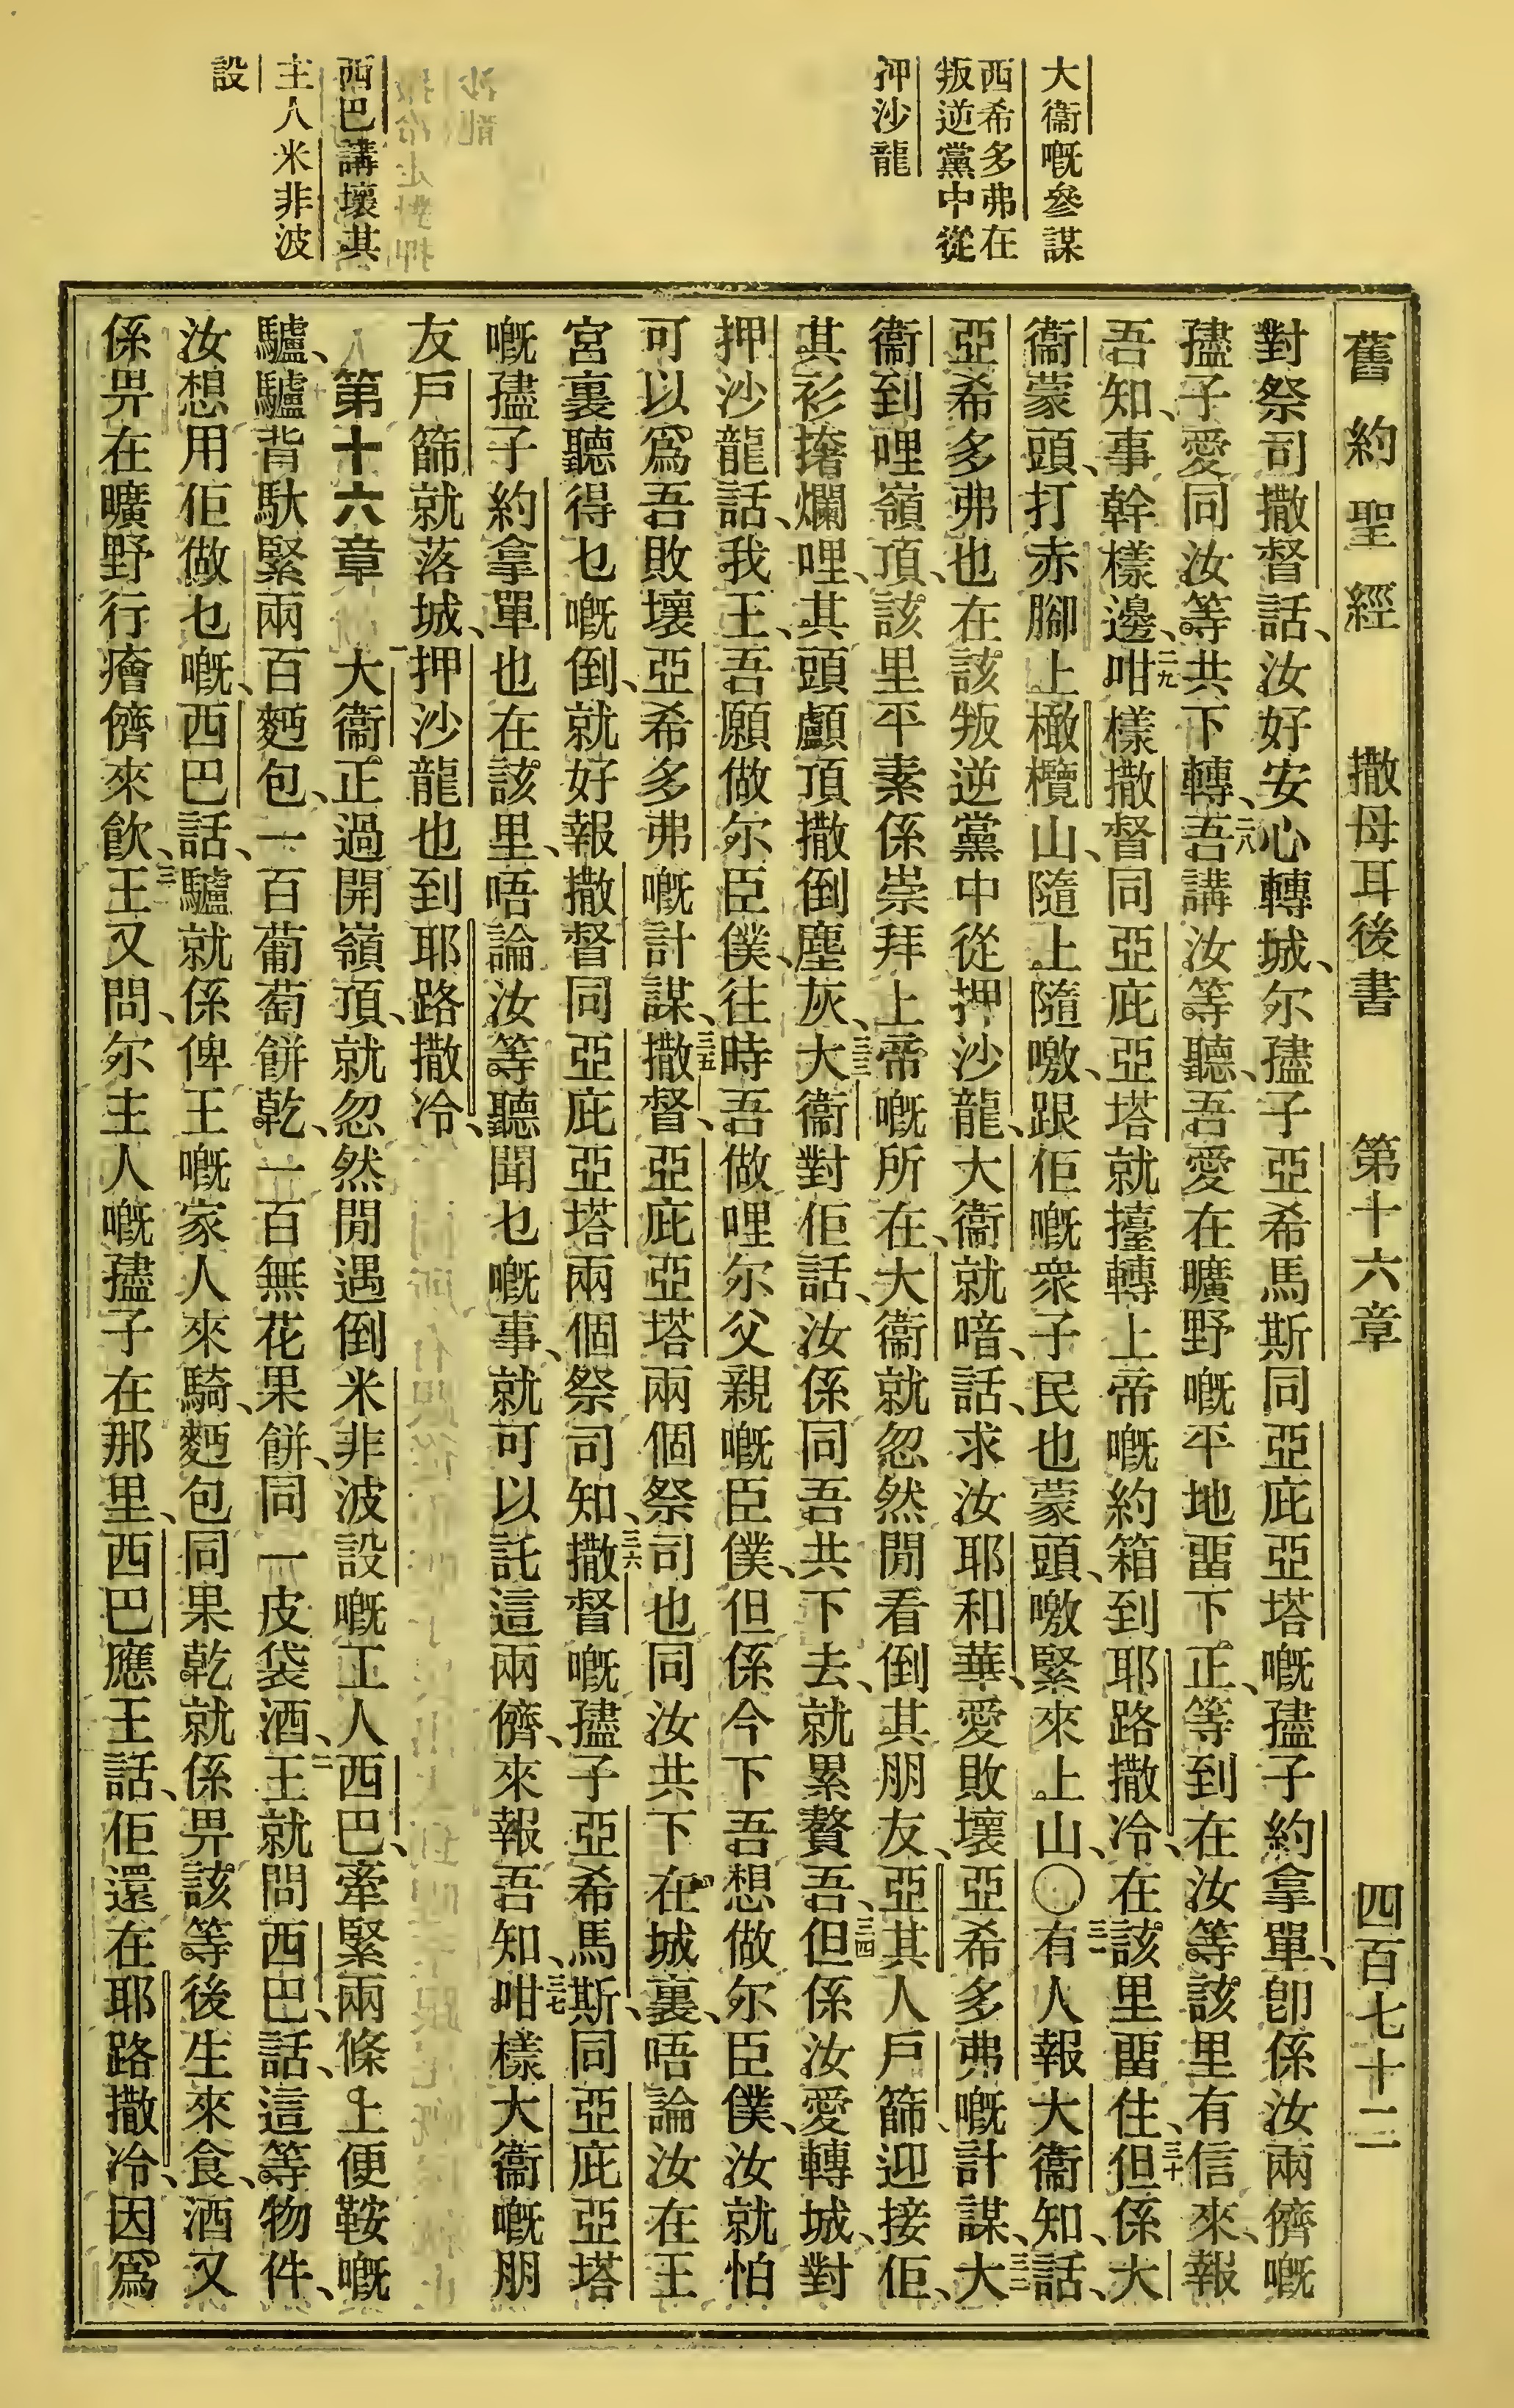 舊約聖經 撒母耳後書 第十六章 四百七十二
大衞嘅參謀
西希多弗在
叛逆黨中從
押沙龍
西巴講壞其
主人米非波
設
對祭司撒督話、汝好安心轉城、尔孻子亞希馬斯同亞庇亞塔嘅孻子約拿單、卽係汝兩儕嘅
孻子愛同汝等共下轉、二八吾講汝等聽、吾愛在曠野嘅平地畱下、正等到在汝等該里有信來、報
吾知、事幹樣邊、二九咁樣撒督同亞庇亞塔就擡轉上帝嘅約箱到耶路撒冷、在該里畱住、三十但係大
衞蒙頭、打赤腳上橄欖山、隨上隨噭、跟佢嘅衆子民也蒙頭、噭緊來上山、〇三一有人報大衞知、話、
亞希多弗也在該叛逆黨中從押沙龍、大衞就喑話、求汝耶和華、愛敗壞亞希多弗嘅計謀、三二大
衞到哩嶺頂、該里平素係崇拜上帝嘅所在、大衞就忽然閒看倒其朋友、亞其人戶篩迎接佢、
其衫撦爛哩、其頭顱頂撒倒塵灰、三三大衞對佢話、汝係同吾共下去、就累贅吾、三四但係汝愛轉城、對
押沙龍話、我王、吾願做尔臣僕、往時吾做哩尔父親嘅臣僕、但係今下吾想做尔臣僕、汝就怕
可以爲吾敗壞亞希多弗嘅計謀、三五撒督、亞庇亞塔兩個祭司也同汝共下在城裏、唔論汝在王
宮裏聽得乜嘅倒、就好報撒督同亞庇亞塔兩個祭司知、三六撒督嘅孻子亞希馬斯、同亞庇亞塔
嘅孻子約拿單也在該里、唔論汝等聽聞乜嘅事、就可以託這兩儕、來報吾知、三七咁樣大衞嘅朋
友戶篩就落城、押沙龍也到耶路撒冷、
第十六章 一大衞正過開嶺頂、就忽然閒遇倒米非波設嘅工人西巴、牽緊兩條上便鞍嘅
驢、驢背馱緊兩百麪包、一百葡萄餅乾、一百無花果餅、同一皮袋酒、二王就問西巴、話、這等物件、
汝想用佢做乜嘅、西巴話、驢就係俾王嘅家人來騎、麪包同果乾就係畀該等後生來食、酒又
係畀在曠野行癐儕來飮、三王又問、尔主人嘅孻子在那里、西巴應王話、佢還在耶路撒冷、因爲